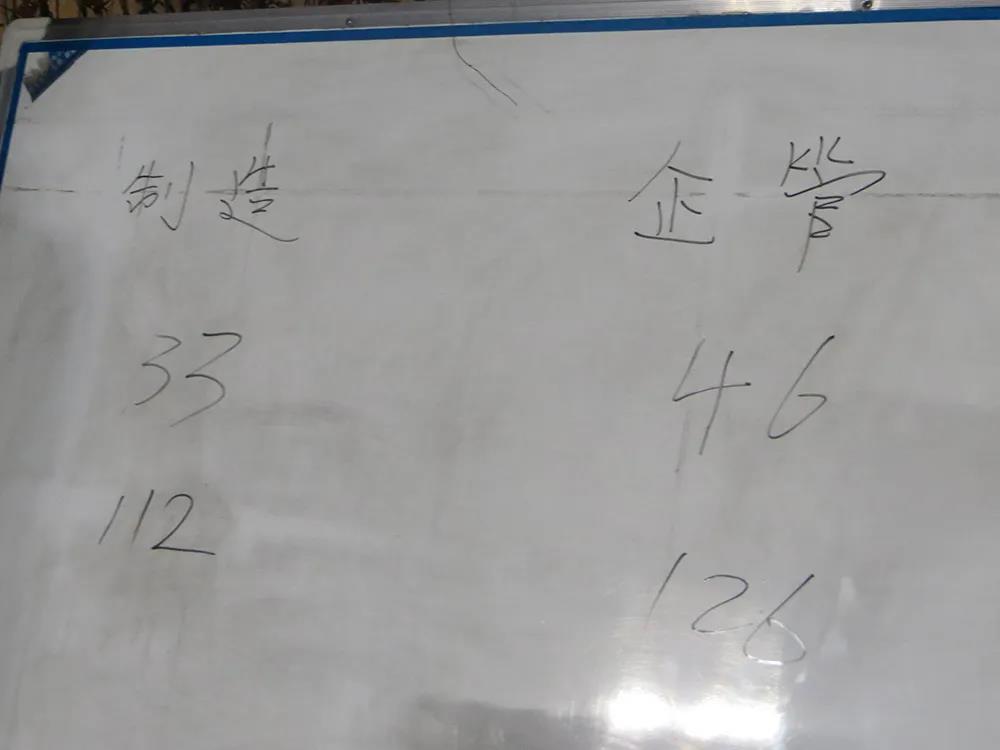 制造 企管
33 46
112 126